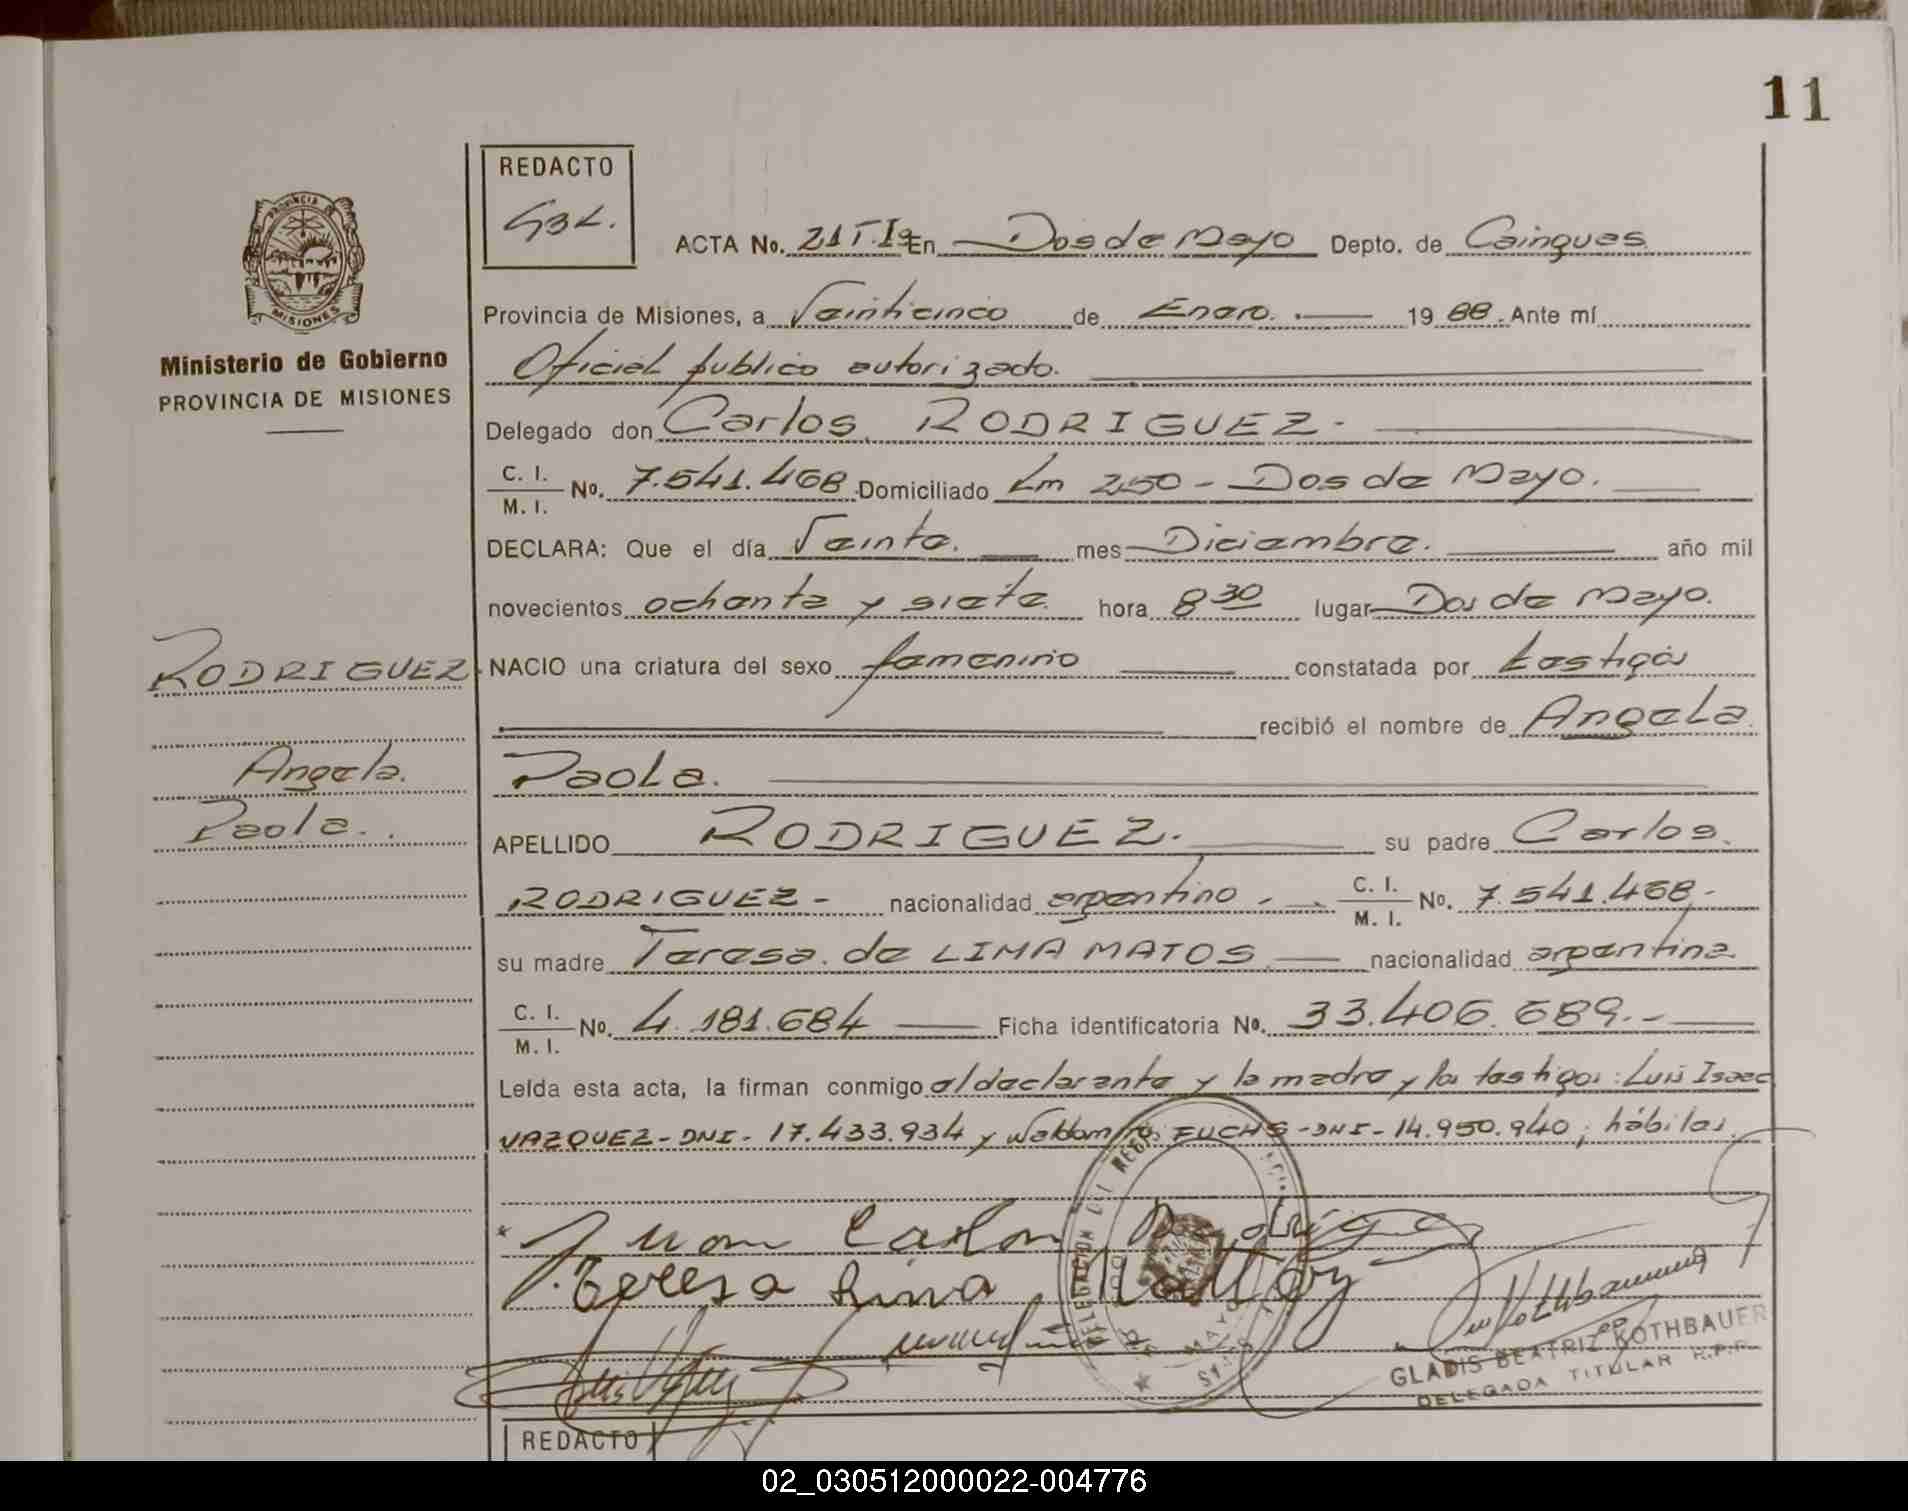 11
REDACTO
GBK.
PROVINCIA DE
MISIONES
Ministerio de Gobierno
PROVINCIA DE MISIONES
ACTA No. 21 T. Iº En Dos de Mayo Depto. de Cainguas
Provincia de Misiones, a Veinticinco de Enero. 1988. Ante mí
Oficial publico autorizado.
Delegado don Carlos RODRIGUEZ.-
C. I.
M. I. No. 7.541.468 Domiciliado Km 250 - Dos de Mayo.
DECLARA: Que el día Veinte. mes Diciembre. año mil
novecientos ochenta y siete. hora 8 30 lugar Dos de Mayo.
NACIO una criatura del sexo femenino constatada por testigos
recibió el nombre de Angela
Paola.
APELLIDO RODRIGUEZ. su padre Carlos
RODRIGUEZ - nacionalidad argentino C. I.
M. I. No. 7.541.468.
su madre Teresa de LIMA MATOS nacionalidad argentina.
C. I.
M. I. No. 4.181.684 Ficha identificatoria No. 33.406.689.-
Leída esta acta, la firman conmigo el declarante y la madre y los testigos: Luis Isaac
VAZQUEZ - DNI - 17.433.934 y Waldomiro FUCHS - DNI - 14.950.940; hábiles.
RODRIGUEZ
Angela.
Paola.
Juan Carlos Rodrigue
Teresa Lima Mattoz
DELEGACION DEL REG
MAYO
GLADIS BEATRIZ KOTHBAUER
DELEGADA TITULAR R.P.P.
REDACTO
02_030512000022-004776